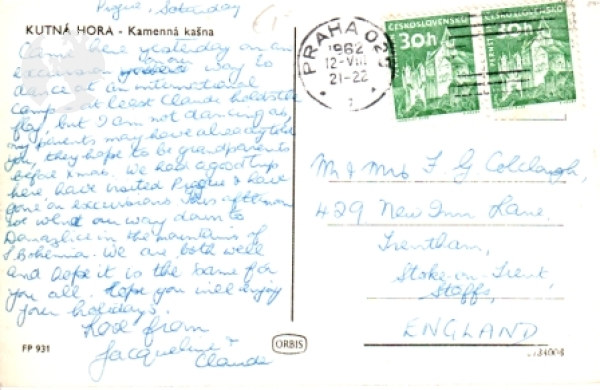 Prague, Saturday
KUTNÁ HORA - Kamenná kašna
Came here yesterday on an
excursion on our way to
dance at an international
camp - at least Claude holds the
flag, but I am not dancing as,
my parents may have already told
you, they hope to be grandparents
before Xmas. We had a good trip
here have visited Prague & have
gone on excursions. This afternoon
we wend our way down to
Domazlice in the mountains of
S. Bohemia. We are both well
and hope it is the same for
you all. Hope you will enjoy
your holidays.
Love from
Jacqueline &
Claude
FP 931
ORBIS
PRAHA 025
1962
12-VIII
21-22
ČESKOSLOVENSKO
30h
ČESKOSLOVENSKO
30h
Mr & Mrs F. G Colclough,
429 New Inn Lane.
Trentham,
Stoke-on-Trent,
Staffs,
ENGLAND